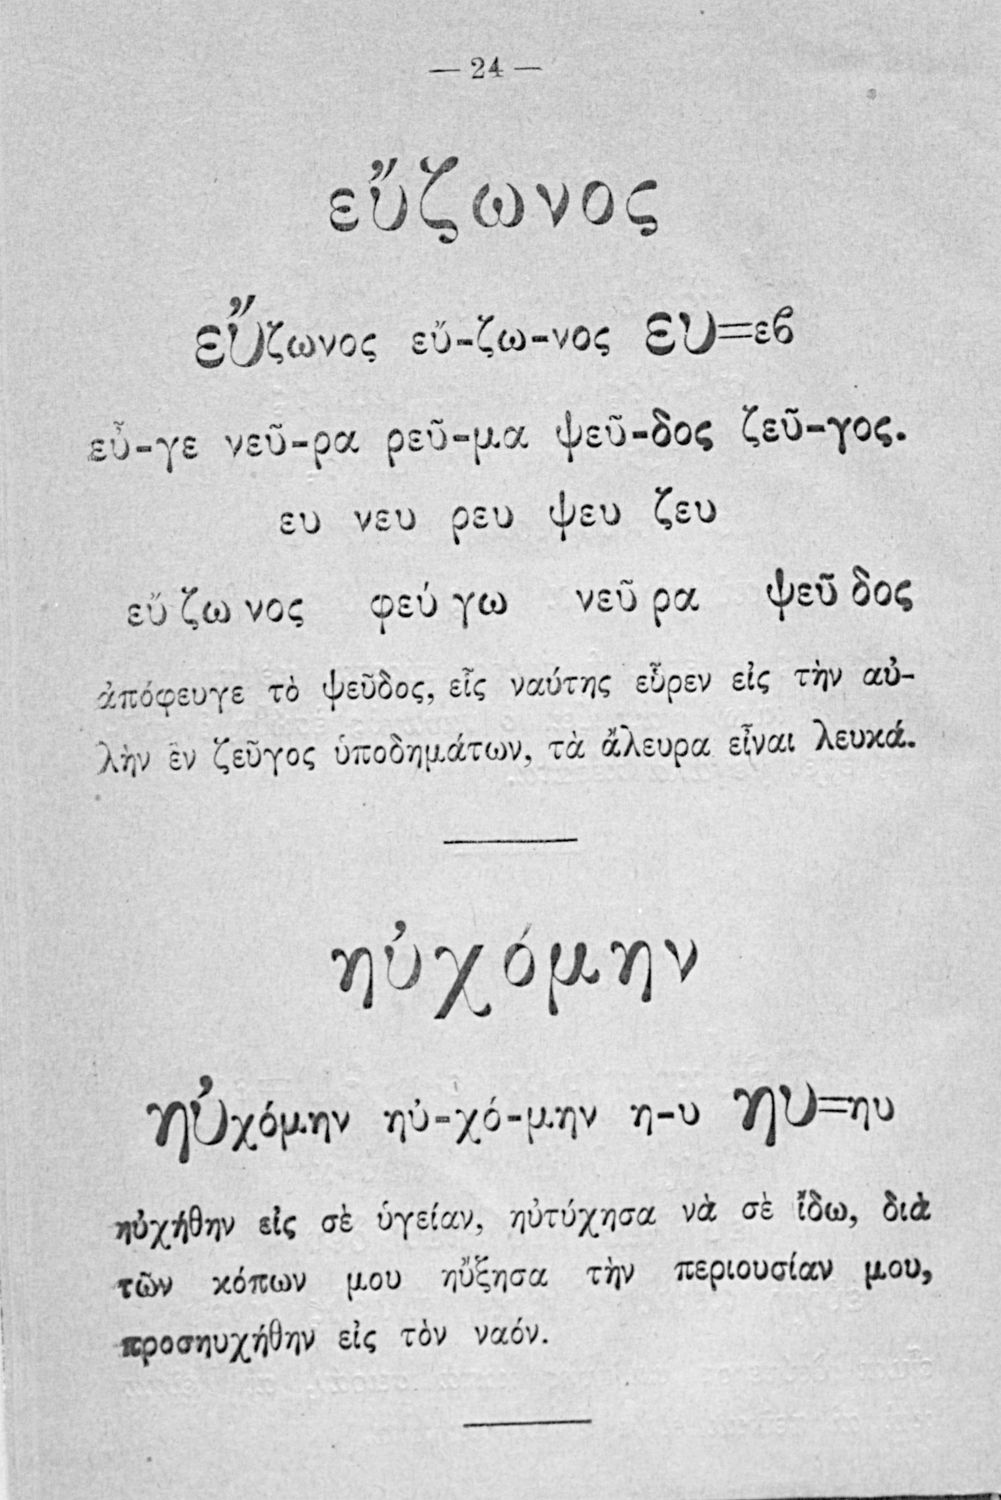 — 24 —
εὔζωνος
εὔζωνος εὔ-ζω-νος ευ=εϐ
εὖ-γε νεῦ-ρα ρεῦ-μα ψεῦ-δος ζεῦ-γος.
ευ νευ ρευ ψευ ζευ
εὔ ζω νος φεύ γω νεῦ ρα ψεῦ δος
ἀπόφευγε τὸ ψεῦδος, εἷς ναύτης εὗρεν εἰς τὴν αὐ-
λὴν ἓν ζεῦγος ὑποδημάτων, τὰ ἄλευρα εἶναι λευκά.
ηὐχόμην
ηὐχόμην ηὐ-χό-μην η-υ ηυ=ηυ
ηὐχήθην εἰς σὲ ὑγείαν, ηὐτύχησα νὰ σὲ ἴδω, διὰ
τῶν κόπων μου ηὔξησα τὴν περιουσίαν μου,
προσηυχήθην εἰς τὸν ναόν.